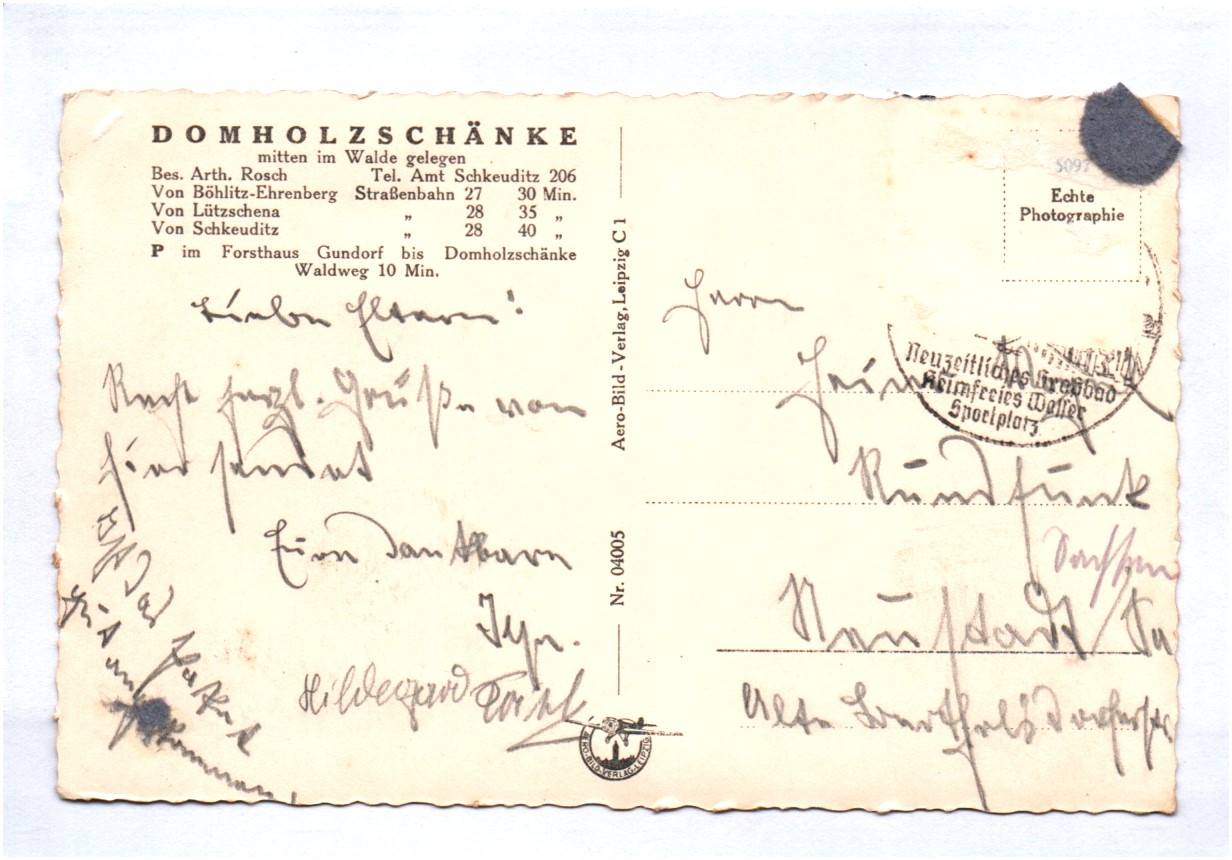 DOMHOLZSCHÄNKE
mitten im Walde gelegen
Bes. Arth. Rosch Tel. Amt Schkeuditz 206
Von Böhlitz-Ehrenberg Straßenbahn 27 30 Min.
Von Lützschena „ 28 35 „
Von Schkeuditz „ 28 40 „
P im Forsthaus Gundorf bis Domholzschänke
Waldweg 10 Min.
Liebe Eltern!
Recht herzl. Grüße von
hier sendet
Eure dankbaren
Hildegard
Ist das Paket
gut angekommen
Aero-Bild-Verlag, Leipzig C 1
Nr. 04005
AERO-BILD-VERLAG-LEIPZIG
5097
Echte
Photographie
Neuzeitliches Großbad
Keimfreies Wasser
Sportplatz
Herrn
Rundfunk
Sachsen
Neustadt / Sa
Alte Berthelsdorferstr.